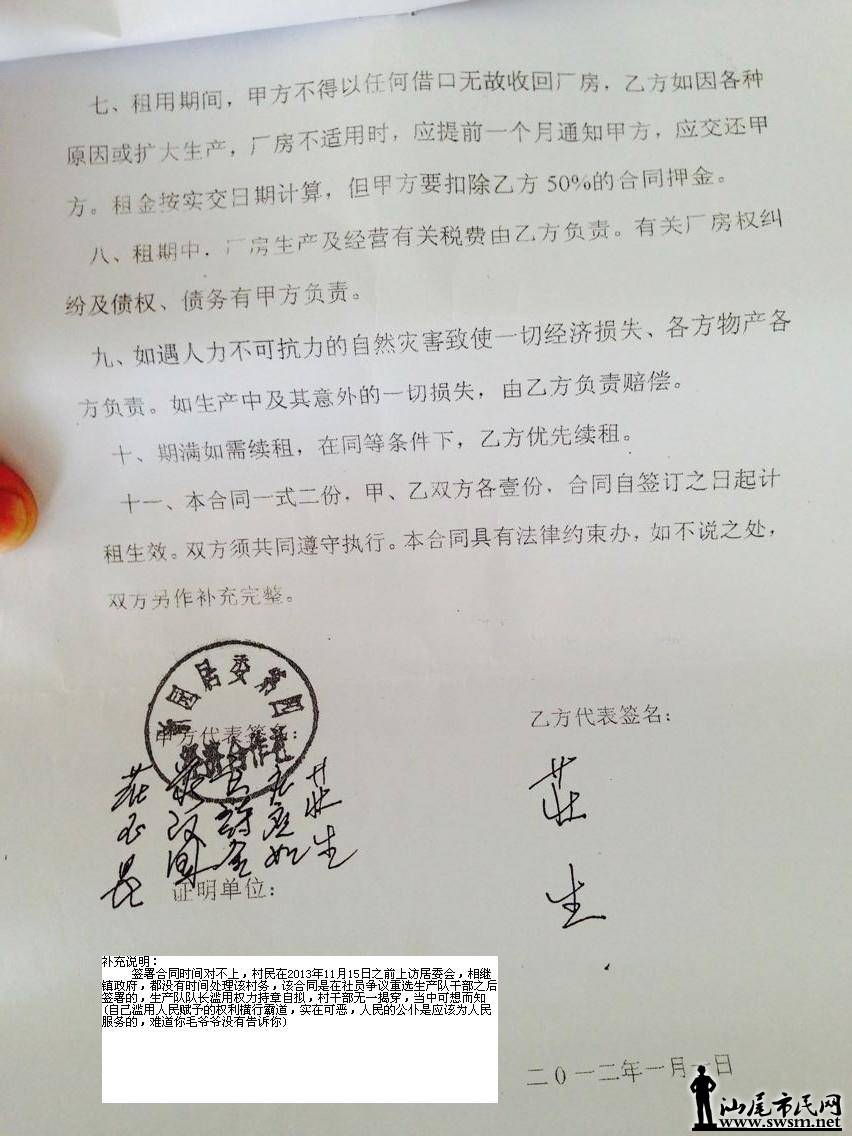 七、租用期间，甲方不得以任何借口无故收回厂房，乙方如因各种
原因或扩大生产，厂房不适用时，应提前一个月通知甲方，应交还甲
方。租金按实交日期计算，但甲方要扣除乙方50%的合同押金。
八、租期中，厂房生产及经营有关税费由乙方负责。有关厂房权纠
纷及债权、债务有甲方负责。
九、如遇人力不可抗力的自然灾害致使一切经济损失、各方物产各
方负责。如生产中及其意外的一切损失，由乙方负责赔偿。
十、期满如需续租，在同等条件下，乙方优先续租。
十一、本合同一式二份，甲、乙双方各壹份，合同自签订之日起计
租生效。双方须共同遵守执行。本合同具有法律约束办，如不说之处，
双方另作补充完整。
居委第四
甲方代表签名：
乙方代表签名：
莊生
莊生
证明单位：
补充说明：
签署合同时间对不上，村民在2013年11月15日之前上访居委会，相继
镇政府，都没有时间处理该村务，该合同是在社员争议重选生产队干部之后
签署的，生产队队长滥用权力持章自拟，村干部无一揭穿，当中可想而知
(自己滥用人民赋予的权利横行霸道，实在可恶，人民的公仆是应该为人民
服务的，难道你毛爷爷没有告诉你)
二0一二年一月一日
汕尾市民网
www.swsm.net